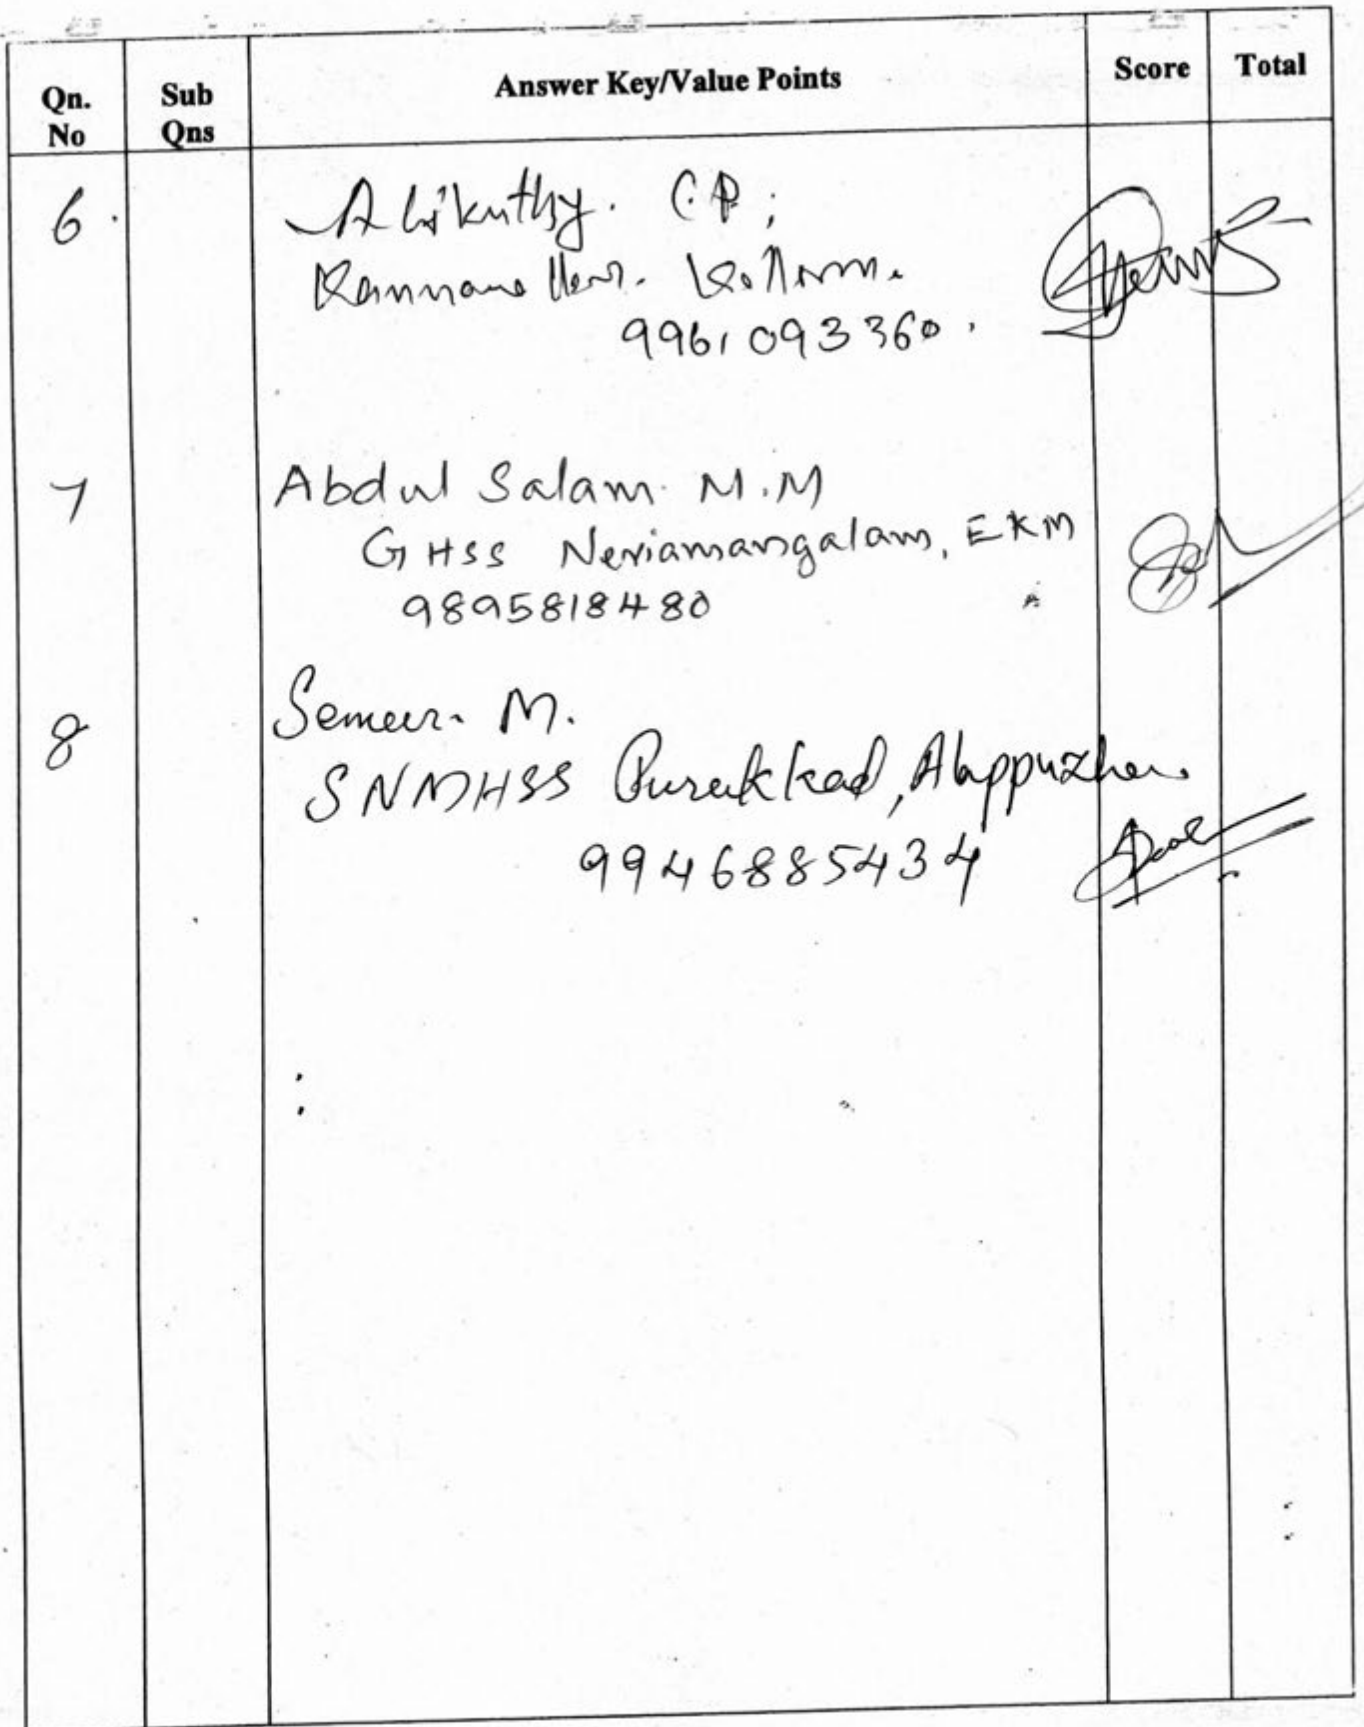 Qn. No Sub Qns Answer Key/Value Points Score Total
6. Alikuthy. C.P;
Kollam.
9961093360.
7 Abdul Salam. M.M
GHSS Neriamangalam, EKM
9895818480
8 Semeer. M.
SNMHSS Purakkad, Alappuzha.
9946885434